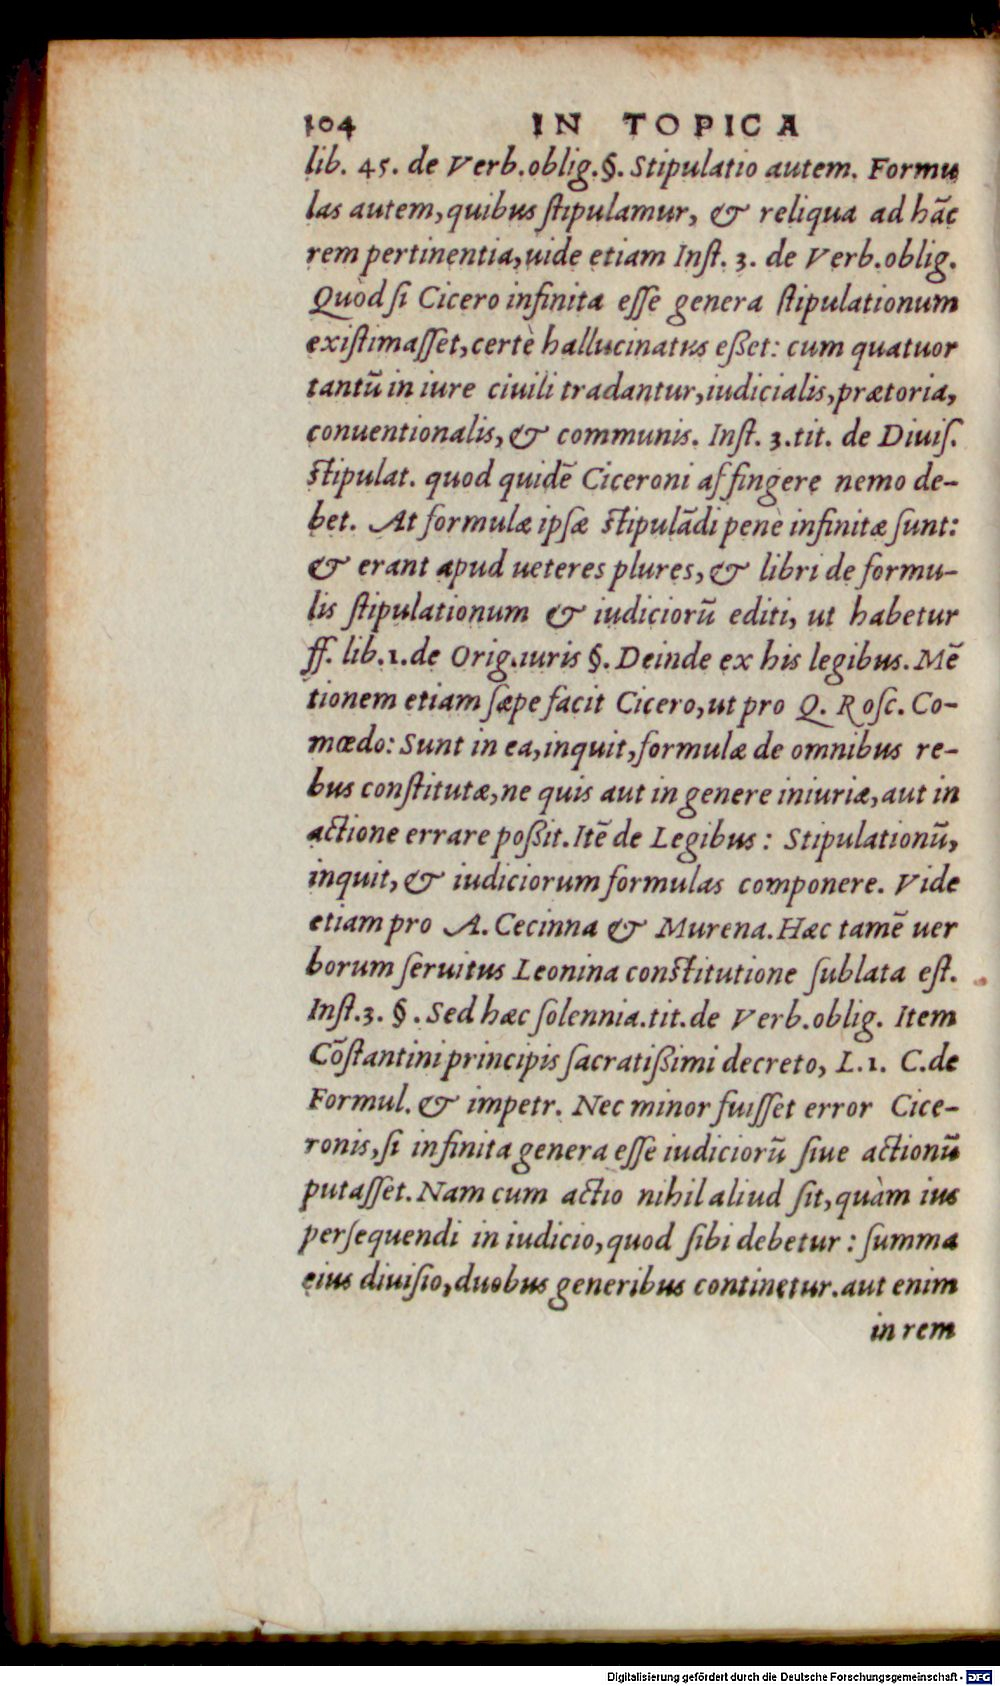 104 IN TOPICA
lib. 45. de Verb.oblig.§. Stipulatio autem. Formu
las autem,quibus ſtipulamur, & reliqua ad hāc
rem pertinentia,uide etiam Inſt. 3. de Verb.oblig.
Quòd ſi Cicero infinita eſſe genera ſtipulationum
exiſtimaſſet,certè hallucinatus eßet: cum quatuor
tantū in iure ciuili tradantur,iudicialis,prætoria,
conuentionalis,& communis. Inſt. 3.tit. de Diuiſ.
ſtipulat. quod quidē Ciceroni affingere nemo de-
bet. At formulæ ipſæ ſtipulādi penè infinitæ ſunt:
& erant apud ueteres plures,& libri de formu-
lis ſtipulationum & iudiciorū editi, ut habetur
ff. lib.1.de Orig.iuris §. Deinde ex his legibus. Mē
tionem etiam ſæpe facit Cicero,ut pro Q. Roſc. Co-
mœdo: Sunt in ea,inquit,formulæ de omnibus re-
bus conſtitutæ,ne quis aut in genere iniuriæ,aut in
actione errare poßit.Itē de Legibus: Stipulationū,
inquit,& iudiciorum formulas componere. Vide
etiam pro A. Cecinna & Murena. Hæc tamē uer
borum ſeruitus Leonina conſtitutione ſublata eſt.
Inſt.3. §. Sed hæc ſolennia.tit.de Verb.oblig. Item
Cōſtantini principis ſacratißimi decreto, L.1. C.de
Formul. & impetr. Nec minor fuiſſet error Cice-
ronis,ſi infinita genera eſſe iudiciorū ſiue actionū
putaſſet. Nam cum actio nihil aliud ſit,quàm ius
perſequendi in iudicio,quod ſibi debetur: ſumma
eius diuiſio,duobus generibus continetur.aut enim
in rem
Digitalisierung gefördert durch die Deutsche Forschungsgemeinschaft - DFG